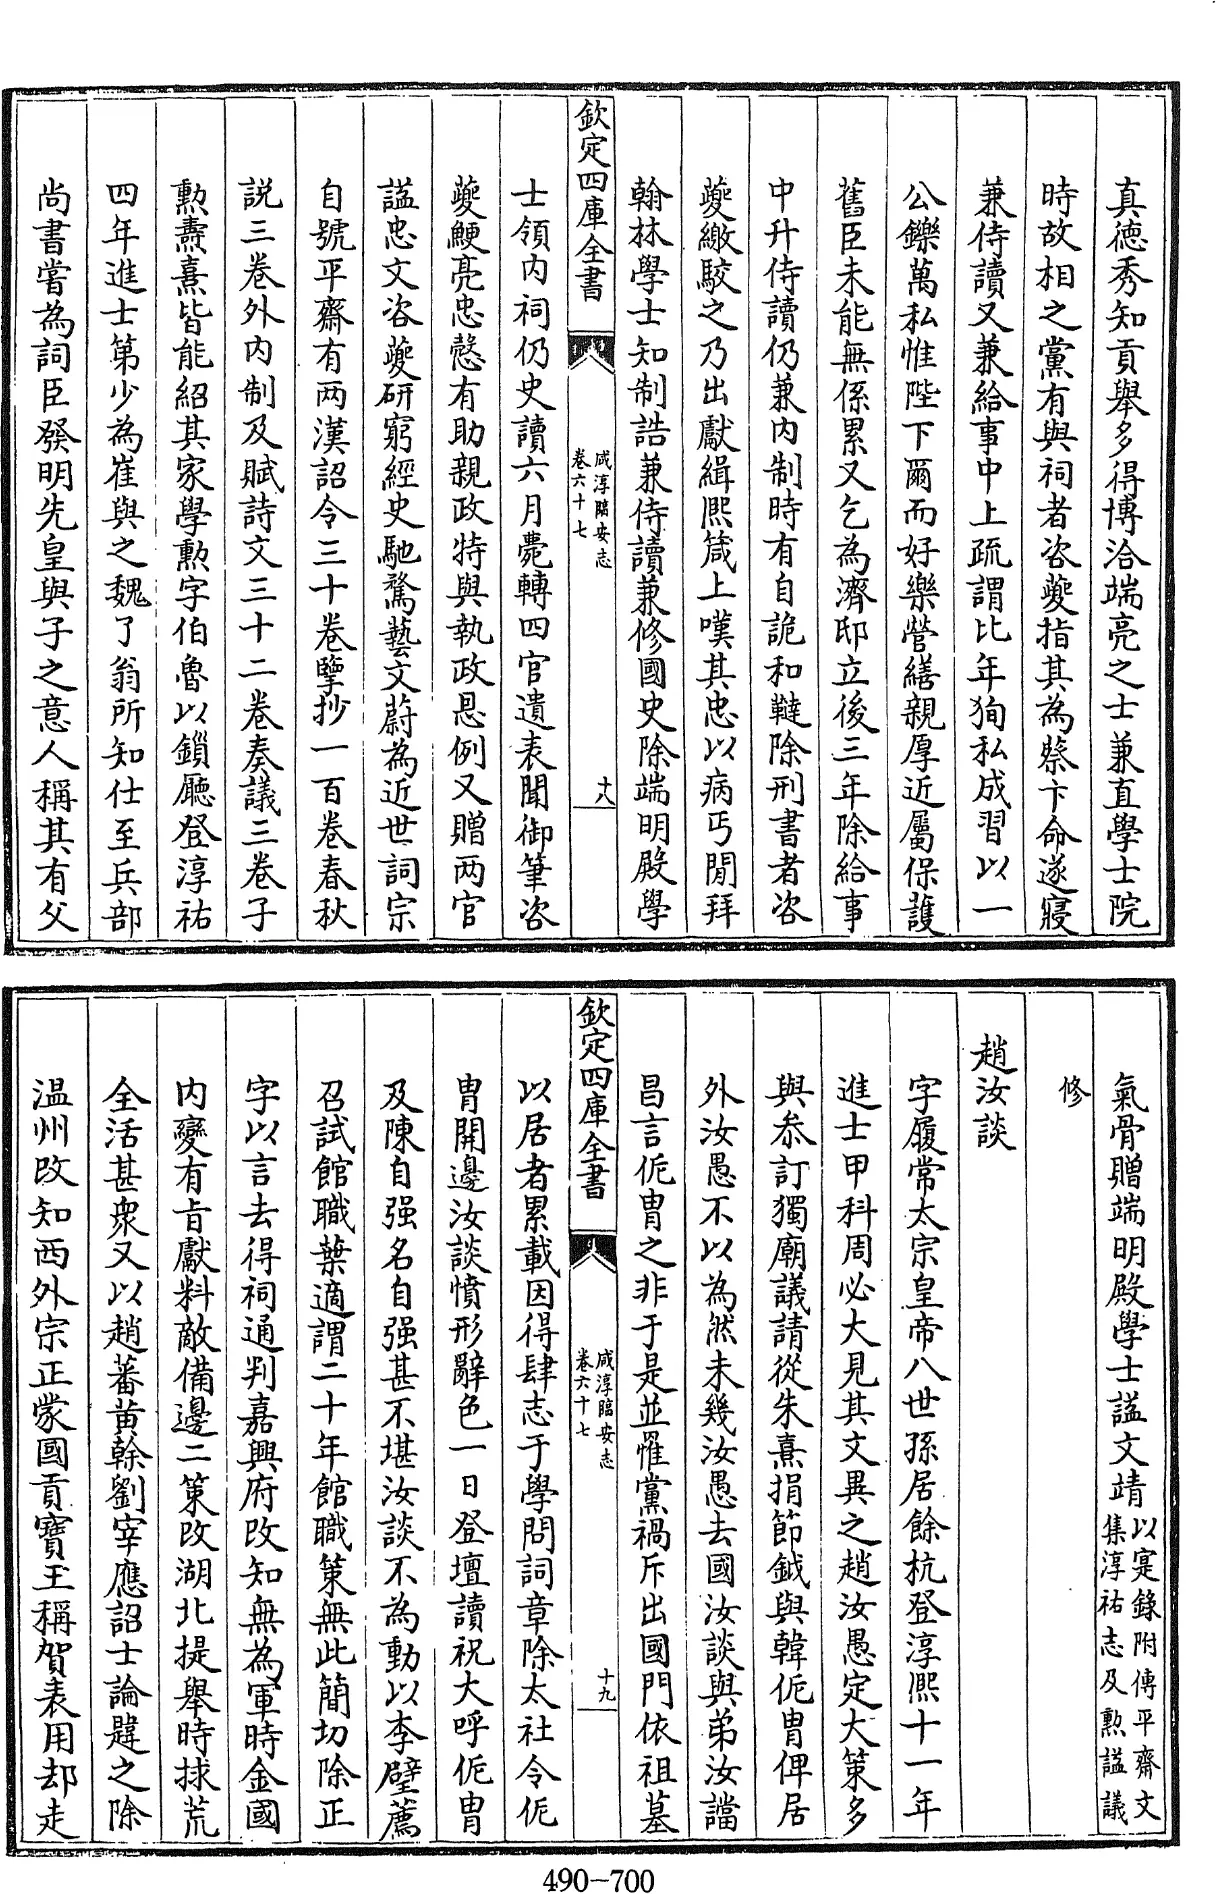 真德秀知貢舉多得博洽端亮之士兼直學士院
時故相之黨有與祠者咨夔指其為蔡卞命遂寢
兼侍讀又兼給事中上疏謂比年狥私成習以一
公鑠萬私惟陛下爾而好樂營繕親厚近屬保護
舊臣未能無係累又乞為濟邸立後三年除給事
中升侍讀仍兼内制時有自詭和韃除刑書者咨
夔繳駮之乃出獻緝熙箴上嘆其忠以病丐閒拜
翰林學士知制誥兼侍讀兼修國史除端明殿學
欽定四庫全書
咸淳臨安志
卷六十七
十八
士領内祠仍史讀六月薨轉四官遺表聞御筆咨
夔鯁亮忠慤有助親政特與執政恩例又贈两官
諡忠文咨夔研窮經史馳騖藝文蔚為近世詞宗
自號平齋有两漢詔令三十卷擥抄一百卷春秋
説三卷外内制及賦詩文三十二卷奏議三卷子
勲燾熹皆能紹其家學勲字伯魯以鎖廳登淳祐
四年進士第少為崔與之魏了翁所知仕至兵部
尚書嘗為詞臣發明先皇與子之意人稱其有父
氣骨贈端明殿學士諡文靖以寔錄附傳平齋文
集淳祐志及勲諡議
修
趙汝談
字履常太宗皇帝八世孫居餘杭登淳熙十一年
進士甲科周必大見其文異之趙汝愚定大策多
與叅訂獨廟議請從朱熹捐節鉞與韓侂胄俾居
外汝愚不以為然未幾汝愚去國汝談與弟汝讜
昌言侂胄之非于是並罹黨禍斥出國門依祖墓
欽定四庫全書
咸淳臨安志
卷六十七
十九
以居者累載因得肆志于學問詞章除太社令侂
胄開邊汝談憤形辭色一日登壇讀祝大呼侂胄
及陳自强名自强甚不堪汝談不為動以李壁薦
召試館職葉適謂二十年館職策無此簡切除正
字以言去得祠通判嘉興府改知無為軍時金國
内變有旨獻料敵備邊二策改湖北提舉時捄荒
全活甚衆又以趙蕃黄榦劉宰應詔士論韙之除
温州改知西外宗正䝉國貢寶王稱賀表用却走
490-700